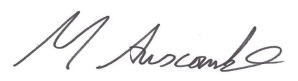 M Anscombe